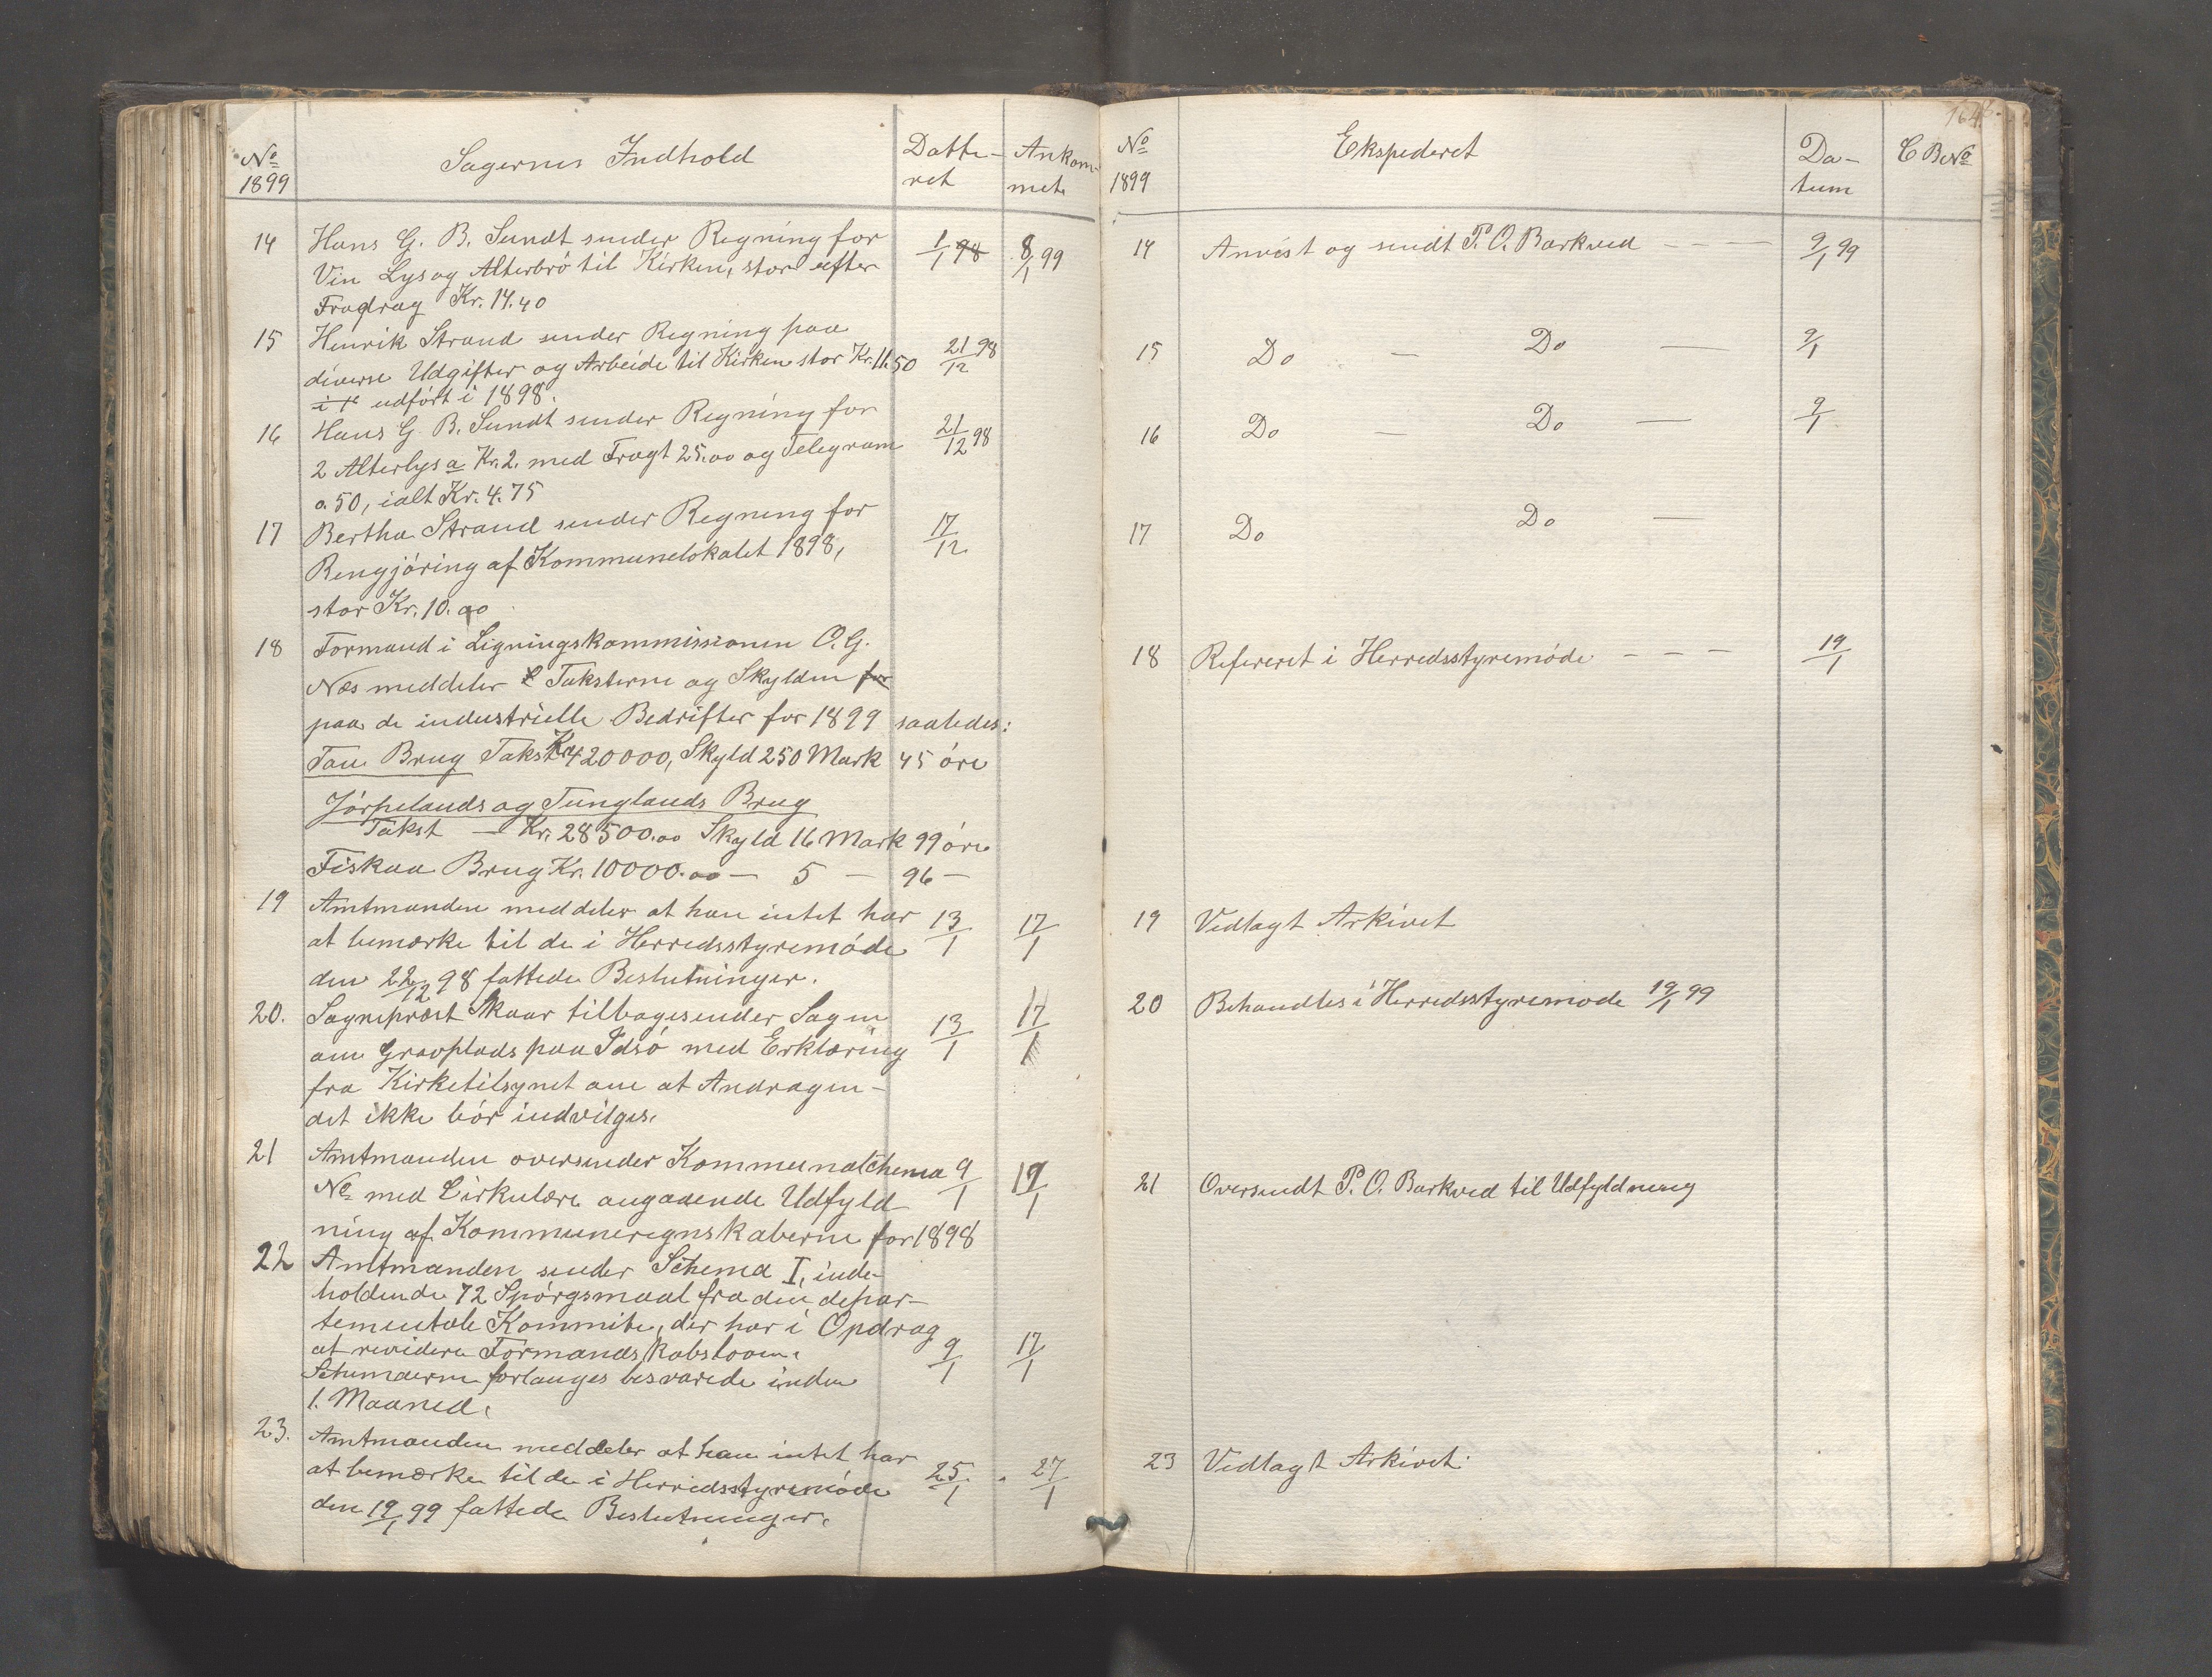 No 1899 Sagernes Indhold Datte- Ankom-
ret met
14 Hans G. B. Sundt sender Regning for 1/1 98 8/1 99
Vin Lys og Alterbrö til Kirken, stor efter
Fradrag Kr. 14.40
15 Henrik Strand sender Regning paa
diverse Udgifter og Arbeide til Kirken stor Kr. 11.50 21/12 98
udfört i 1898.
16 Hans G. B. Sundt sender Regning for
2 Alterlys a Kr. 2. med Fragt 25.00 og Telegram 21/12 98
0.50, ialt Kr. 4.75
17 Bertha Strand sender Regning for 17/12
Rengjöring af Kommunelokalet 1898,
stor Kr. 10.00
18 Formand i Ligningskommissionen O. G.
Næs meddeler Taksterne og Skylden for
paa de industrielle Bedrifter for 1899 saaledes:
Tau Brug Takst Kr. 420000, Skyld 250 Mark 45 öre
Jörpelands og Tunglands Brug
Takst — Kr. 28500.00 Skyld 16 Mark 99 öre
Fiskaa Brug Kr. 10000.00 — 5 — 96 —
19 Amtmanden meddeler at han intet har 13/1 17/1
at bemærke til de i Herredsstyremöde
den 22/12 98 fattede Beslutninger.
20. Sogneprest Skaar tilbagesender Sagen 13/1 17/1
om Gravplads paa Idsö med Erklæring
fra Kirketilsynet om at Andragen-
det ikke bör indvilges.
21 Amtmanden oversender Kommunalchema 9/1 19/1
No med Cirkulære angaaende Udfyld
ning af Kommuneregnskaberne for 1898
22 Amtmanden sender Schema I, inde-
holdende 72 Spörgsmaal fra den depar-
tementale Kommite, der har i Opdrag
at revidere Formandskabsloven. 9/1 17/1
Schemaerne forlanges besvarede inden
1. Maaned.
23. Amtmanden meddeler at han intet har
at bemærke til de i Herredsstyremöde 25/1 27/1
den 19/1 99 fattede Beslutninger.
164
No 1899 Ekspederet Da- C B No
tum
14 Anvist og sendt P. O. Barkved — — — 9/1 99
15 Do — Do — 9/1
16 Do — Do — 9/1
17 Do Do —
18 Refereret i Herredsstyremöde — — — 19/1
19 Vedlagt Arkivet
20 Behandles i Herredsstyremöde 19/1 99
21 Oversendt P. O. Barkved til Udfyldning
23 Vedlagt Arkivet.